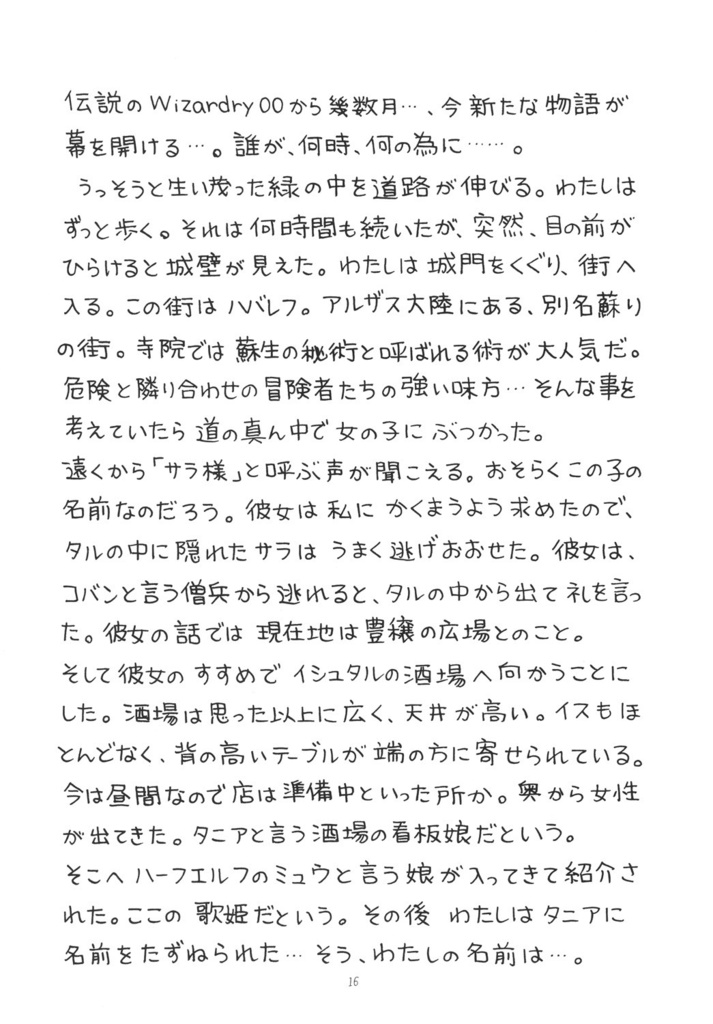 伝説のWizardry00から幾数月…、今新たな物語が
幕を開ける…。誰が、何時、何の為に……。
うっそうと生い茂った緑の中を道路が伸びる。わたしは
ずっと歩く。それは何時間も続いたが、突然、目の前が
ひらけると城壁が見えた。わたしは城門をくぐり、街へ
入る。この街はハバレフ。アルザス大陸にある、別名蘇り
の街。寺院では蘇生の秘術と呼ばれる術が大人気だ。
危険と隣り合わせの冒険者たちの強い味方…そんな事を
考えていたら道の真ん中で女の子にぶつかった。
遠くから「サラ様」と呼ぶ声が聞こえる。おそらくこの子の
名前なのだろう。彼女は私にかくまうよう求めたので、
タルの中に隠れたサラはうまく逃げおおせた。彼女は、
コバンと言う僧兵から逃れると、タルの中から出て礼を言っ
た。彼女の話では現在地は豊穣の広場とのこと。
そして彼女のすすめでイシュタルの酒場へ向かうことに
した。酒場は思った以上に広く、天井が高い。イスもほ
とんどなく、背の高いテーブルが端の方に寄せられている。
今は昼間なので店は準備中といった所か。奥から女性
が出てきた。タニアと言う酒場の看板娘だという。
そこへハーフエルフのミュウと言う娘が入ってきて紹介さ
れた。ここの歌姫だという。その後わたしはタニアに
名前をたずねられた…そう、わたしの名前は…。
16